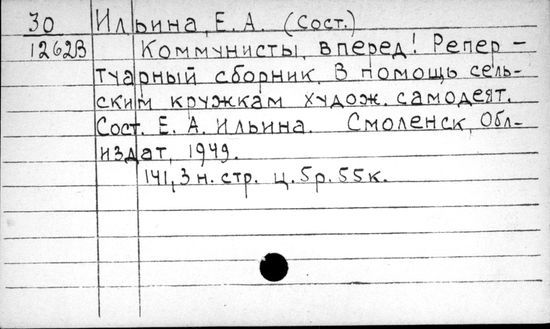 30 Ильина, Е. А. (Сост.)
12623 Коммунисты, вперед! Репер-
туарный сборник. В помощь сель-
ским кружкам худож. самодеят.
Сост. Е. А. Ильина. Смоленск, Обл-
издат, 1949.
141, 3 н. стр. ц. 5 р. 55 к.